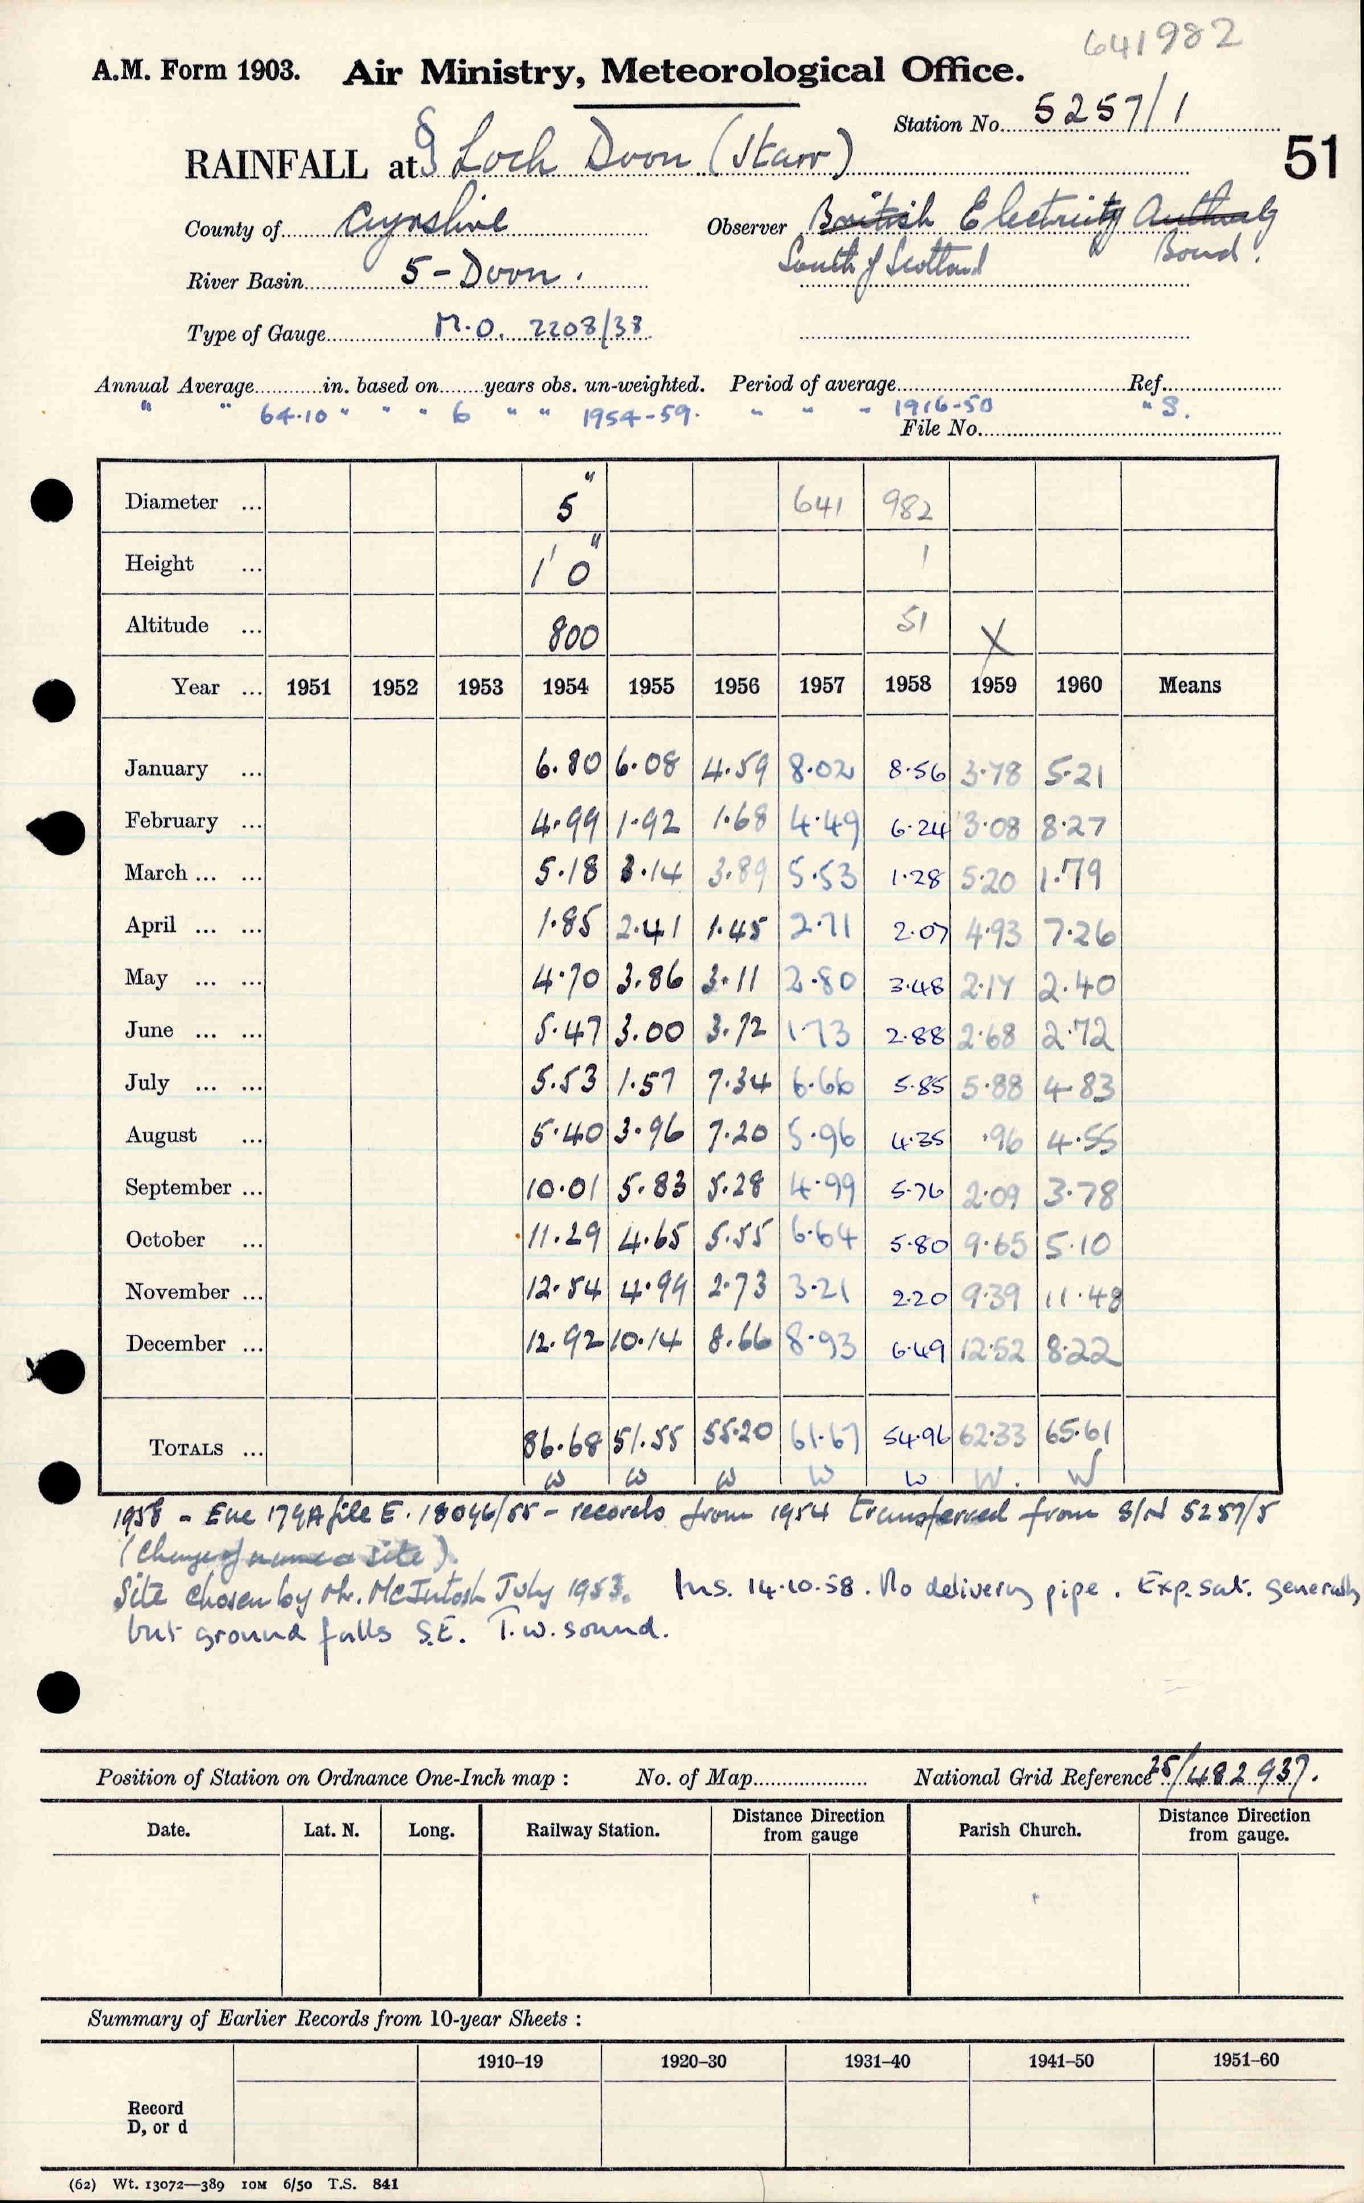 641982
A.M. Form 1903. Air Ministry, Meteorological Office.
Station No. 5257/1
RAINFALL at § Loch Doon (Starr)
51
County of Ayrshire Observer British Electricity Authority
South of Scotland Board.
River Basin 5 - Doon.
Type of Gauge M.O. 2208/38
Annual Average in. based on years obs. un-weighted. Period of average Ref.
" " 64.10 " " " 6 " " 1954-59. " " " 1916-50 " S.
File No.
Diameter ... 5" 641 982
Height ... 1' 0" 1
Altitude ... 800 51 X
Year ... 1951 1952 1953 1954 1955 1956 1957 1958 1959 1960 Means
January ... 6.80 6.08 4.59 8.02 8.56 3.78 5.21
February ... 4.99 1.92 1.68 4.49 6.24 3.08 8.27
March ... ... 5.18 3.14 3.89 5.53 1.28 5.20 1.79
April ... ... 1.85 2.41 1.45 2.71 2.07 4.93 7.26
May ... ... 4.70 3.86 3.11 2.80 3.48 2.17 2.40
June ... ... 5.47 3.00 3.72 1.73 2.88 2.68 2.72
July ... ... 5.53 1.57 7.34 6.66 5.85 5.88 4.83
August ... 5.40 3.96 7.20 5.96 4.35 .96 4.55
September ... 10.01 5.83 5.28 4.99 5.76 2.09 3.78
October ... 11.29 4.65 5.55 6.64 5.80 9.65 5.10
November ... 12.54 4.99 2.73 3.21 2.20 9.39 11.48
December ... 12.92 10.14 8.66 8.93 6.49 12.52 8.22
TOTALS ... 86.68 51.55 55.20 61.67 54.96 62.33 65.61
W W W W W W. W
1958 - Enc 179A file E. 18046/55 - records from 1954 transferred from S/N 5257/5
(Change of name & site).
Site chosen by Mr. McIntosh July 1953. Ins. 14.10.58. No delivery pipe. Exp. sat. generally
but ground falls S.E. T.W. sound.
Position of Station on Ordnance One-Inch map : No. of Map National Grid Reference 25/482937.
Date. Lat. N. Long. Railway Station. Distance Direction from gauge Parish Church. Distance Direction from gauge.
Summary of Earlier Records from 10-year Sheets :
1910–19 1920–30 1931–40 1941–50 1951–60
Record
D, or d
(62) Wt. 13072—389 10M 6/50 T.S. 841